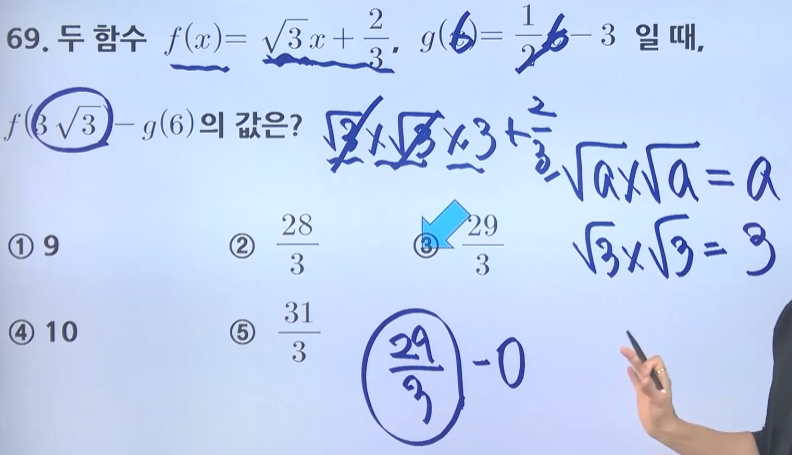 69. 두 함수 f(x)= √3x + 2/3, g(6)= 1/2 6 - 3 일 때,
f(3√3) - g(6)의 값은?
√3 × √3 × 3 + 2/3
√a × √a = a
√3 × √3 = 3
① 9 ② 28/3 ③ 29/3
④ 10 ⑤ 31/3
29/3 - 0